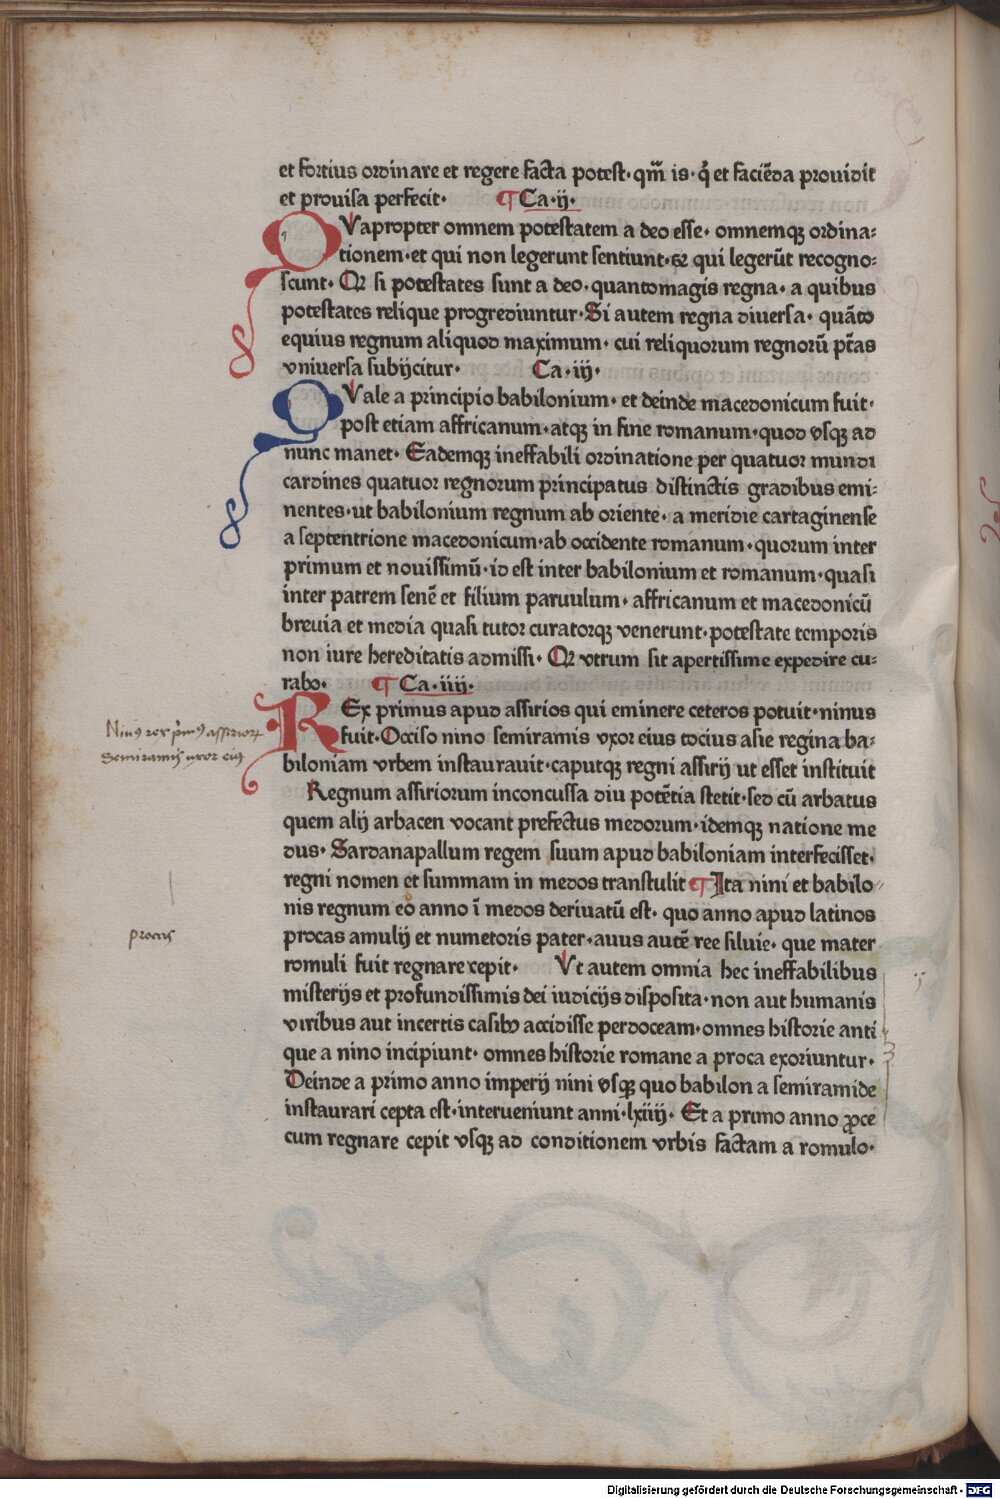 et fortius ordinare et regere facta potest· qm̄ is· q̇ et faciēda prouidit
et prouisa perfecit· ¶ Ca·ij·
QVapropter omnem potestatem a deo esse· omnemqꝫ ordina⸗
tionem·et qui non legerunt sentiunt·⁊ qui legerūt recogno⸗
scunt· Qꝛ si potestates sunt a deo·quantomagis regna· a quibus
potestates relique progrediuntur·Si autem regna diuersa· quāto
equius regnum aliquod maximum· cui reliquorum regnorū ptās
vniuersa subijcitur· Ca·iij·
QVale a principio babilonium· et deinde macedonicum fuit·
post etiam affricanum·atqꝫ in fine romanum·quod vsqꝫ ad
nunc manet· Eademqꝫ ineffabili ordinatione per quatuor mundi
cardines quatuor regnorum principatus distinctis gradibus emi⸗
nentes·ut babilonium regnum ab oriente· a meridie cartaginense
a septentrione macedonicum·ab occidente romanum·quorum inter
primum et nouissimū·id est inter babilonium et romanum·quasi
inter patrem senē et filium paruulum· affricanum et macedonicū
breuia et media quasi tutor curatorqꝫ venerunt·potestate temporis
non iure hereditatis admissi· Qꝛ vtrum sit apertissime expedire cu⸗
rabo· ¶ Ca·iiij·
REx primus apud assirios qui eminere ceteros potuit·ninus
fuit·Occiso nino semiramis vxor eius tocius asie regina ba⸗
Ninꝰ rex pͥmꝰ assirioꝝ
Semiramis uxor eiꝰ
biloniam vrbem instaurauit·caputqꝫ regni assirij ut esset instituit
Regnum assiriorum inconcussa diu potētia stetit·sed cū arbatus
quem alij arbacen vocant prefectus medorum·idemqꝫ natione me
dus· Sardanapallum regem suum apud babiloniam interfecisset·
regni nomen et summam in medos transtulit ¶ Ita nini et babilo
nis regnum eo anno ī medos deriuatū est· quo anno apud latinos
procas amulij et numetoris pater·auus autē ree siluie· que mater
procas
romuli fuit regnare cepit· Vt autem omnia hec ineffabilibus
misterijs et profundissimis dei iudicijs disposita·non aut humanis
viribus aut incertis casibꝰ accidisse perdoceam·omnes historie anti
que a nino incipiunt· omnes historie romane a proca exoriuntur·
Deinde a primo anno imperij nini vsqꝫ quo babilon a semiramide
instaurari cepta est·interueniunt anni·lxiiij· Et a primo anno ꝓce
cum regnare cepit vsqꝫ ad conditionem vrbis factam a romulo·
Digitalisierung gefördert durch die Deutsche Forschungsgemeinschaft · DFG